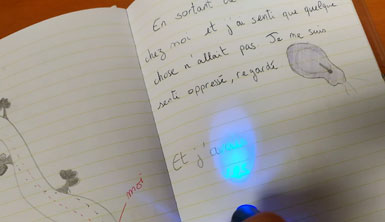 En sortant de
chez moi et j'ai senti que quelque
chose n'allait pas. Je me suis
senti oppressé, regardé.
Et j'
moi